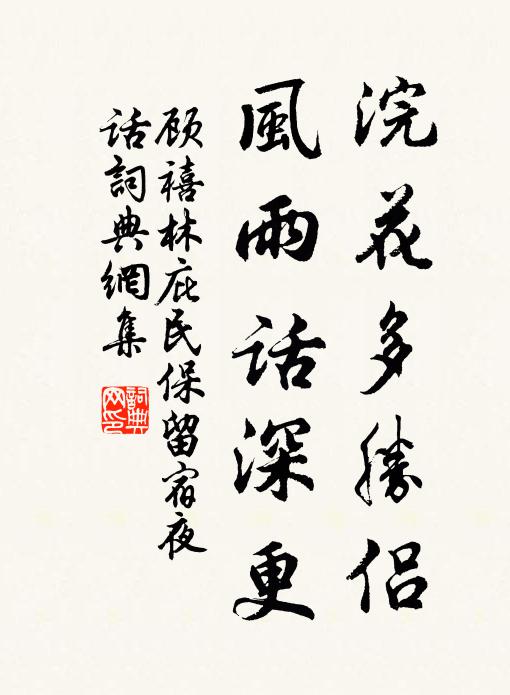 浣花多勝侶
風雨話深更
顾禧林庇民保留宿夜
话詞典網集
詞典网印